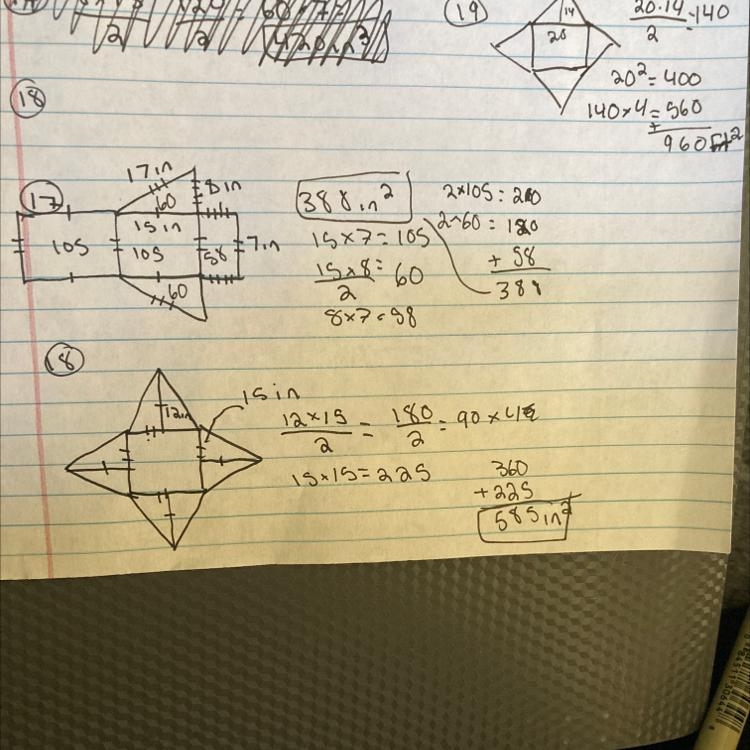 2
2
420in³
19
14
20
20·14
2
=140
20²=400
140×4=560
+
960ft²
18
17
17in
8in
60
15in
105
105
58
7in
60
388in²
15×7=105
15×8=
2
60
8×7=58
2×105=210
2×60=120
+58
388
18
12in
15in
12×15
2
=
180
2
=90×4
15×15=225
360
+225
585in²